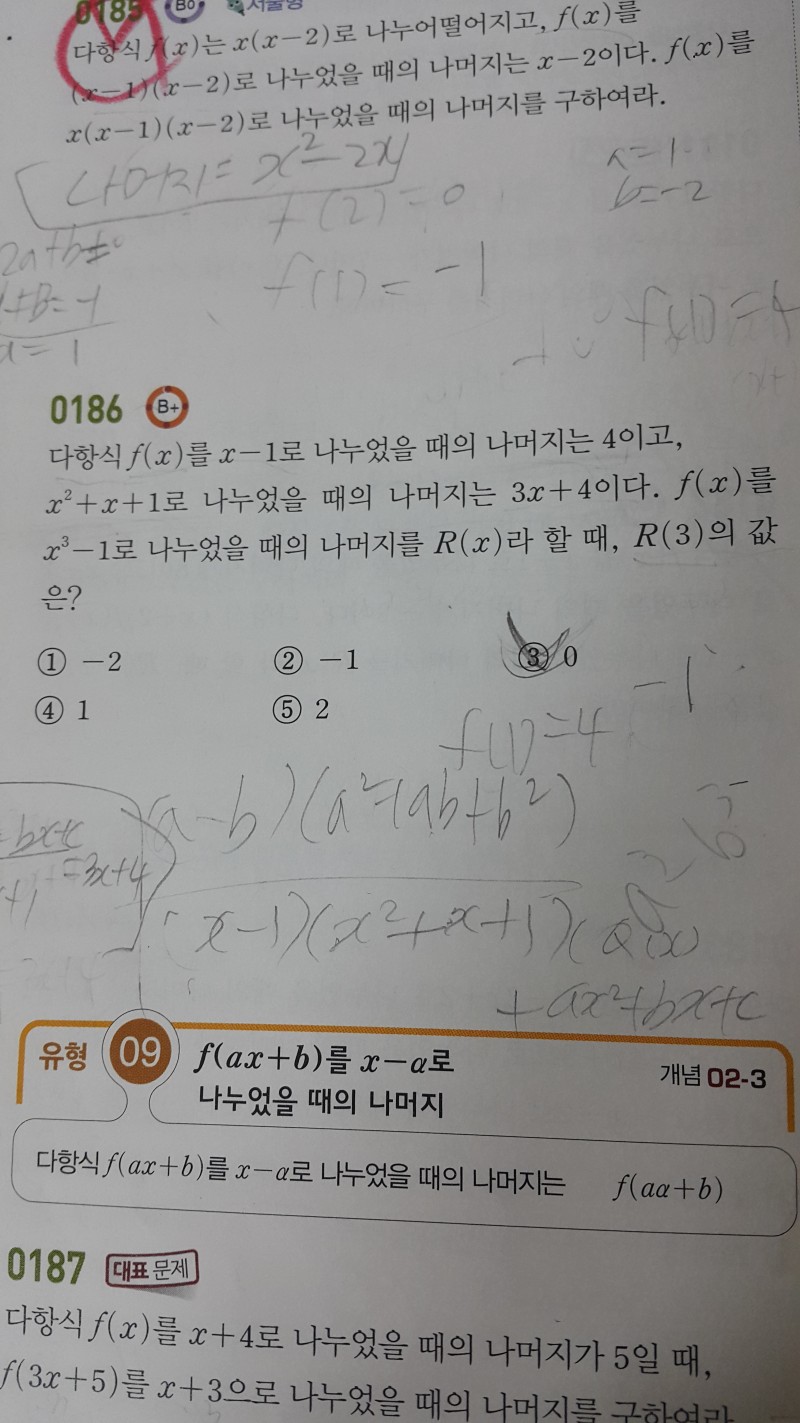 0185 B0 서술형
다항식 f(x)는 x(x-2)로 나누어떨어지고, f(x)를
(x-1)(x-2)로 나누었을 때의 나머지는 x-2이다. f(x)를
x(x-1)(x-2)로 나누었을 때의 나머지를 구하여라.
나머지= x²-2x
f(2)=0
b=-2
f(1)=-1
a=1
0186 B+
다항식 f(x)를 x-1로 나누었을 때의 나머지는 4이고,
x²+x+1로 나누었을 때의 나머지는 3x+4이다. f(x)를
x³-1로 나누었을 때의 나머지를 R(x)라 할 때, R(3)의 값
은?
① -2 ② -1 ③ 0
④ 1 ⑤ 2
-1
f(1)=4
a-b)(a²+ab+b²)
bx+c
=3x+4
x-1)(x²+x+1)
+ax²+bx+c
유형 09 f(ax+b)를 x-α로
나누었을 때의 나머지
개념 02-3
다항식 f(ax+b)를 x-α로 나누었을 때의 나머지는 f(aα+b)
0187 대표 문제
다항식 f(x)를 x+4로 나누었을 때의 나머지가 5일 때,
f(3x+5)를 x+3으로 나누었을 때의 나머지를 구하여라